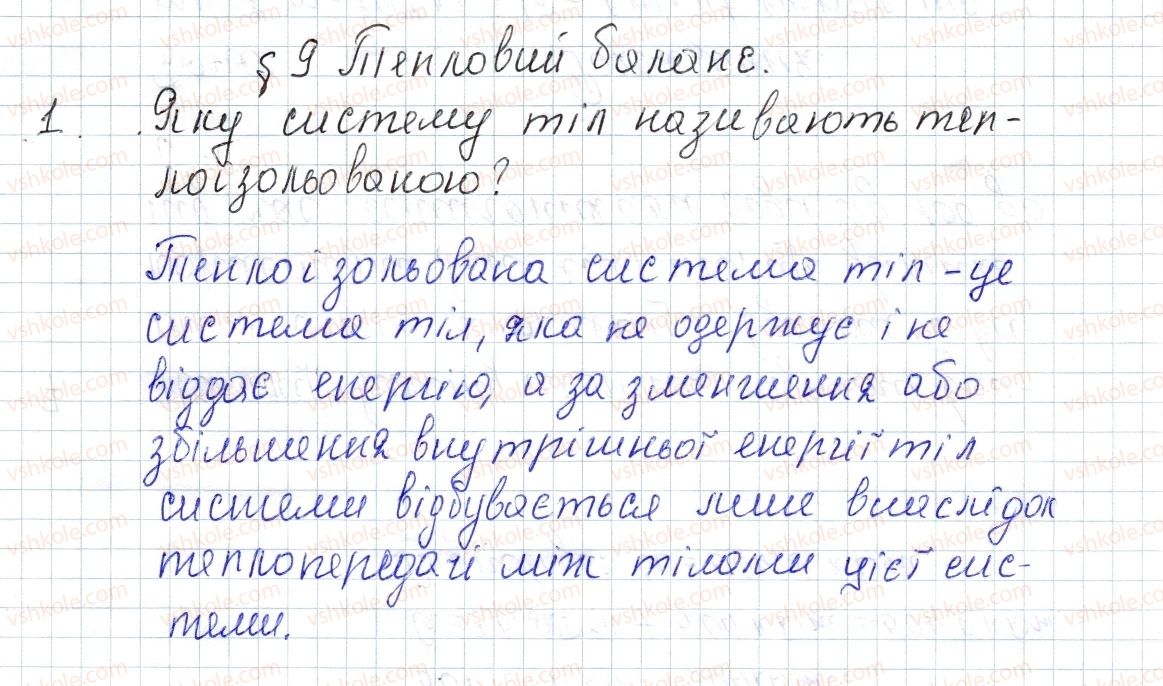 § 9 Тепловий баланс.
1. Яку систему тіл називають теп-
лоізольованою?
Теплоізольована система тіл - це
система тіл, яка не одержує і не
віддає енергію, а за зменшення або
збільшення внутрішньої енергії тіл
системи відбувається лише внаслідок
теплопередачі між тілами цієї сис-
теми.